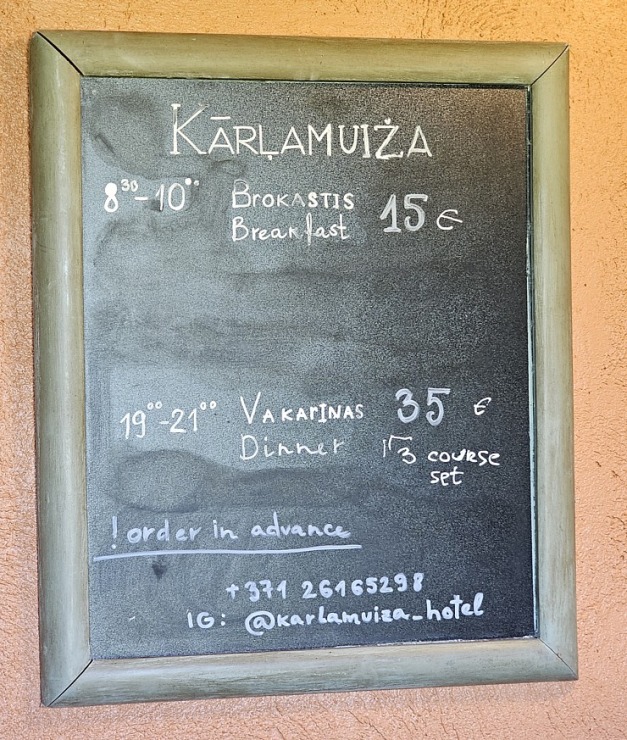 KĀRĻAMUIŽA
8³⁰-10⁰⁰ BROKASTIS 15 €
Breakfast
19⁰⁰-21⁰⁰ VAKARIŅAS 35 €
Dinner 3 course
set
! order in advance
+371 26165298
IG: @karlamuiza_hotel